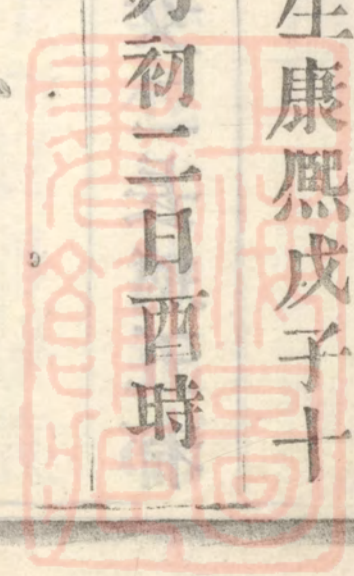 生康熈戊子十
月初二日酉時